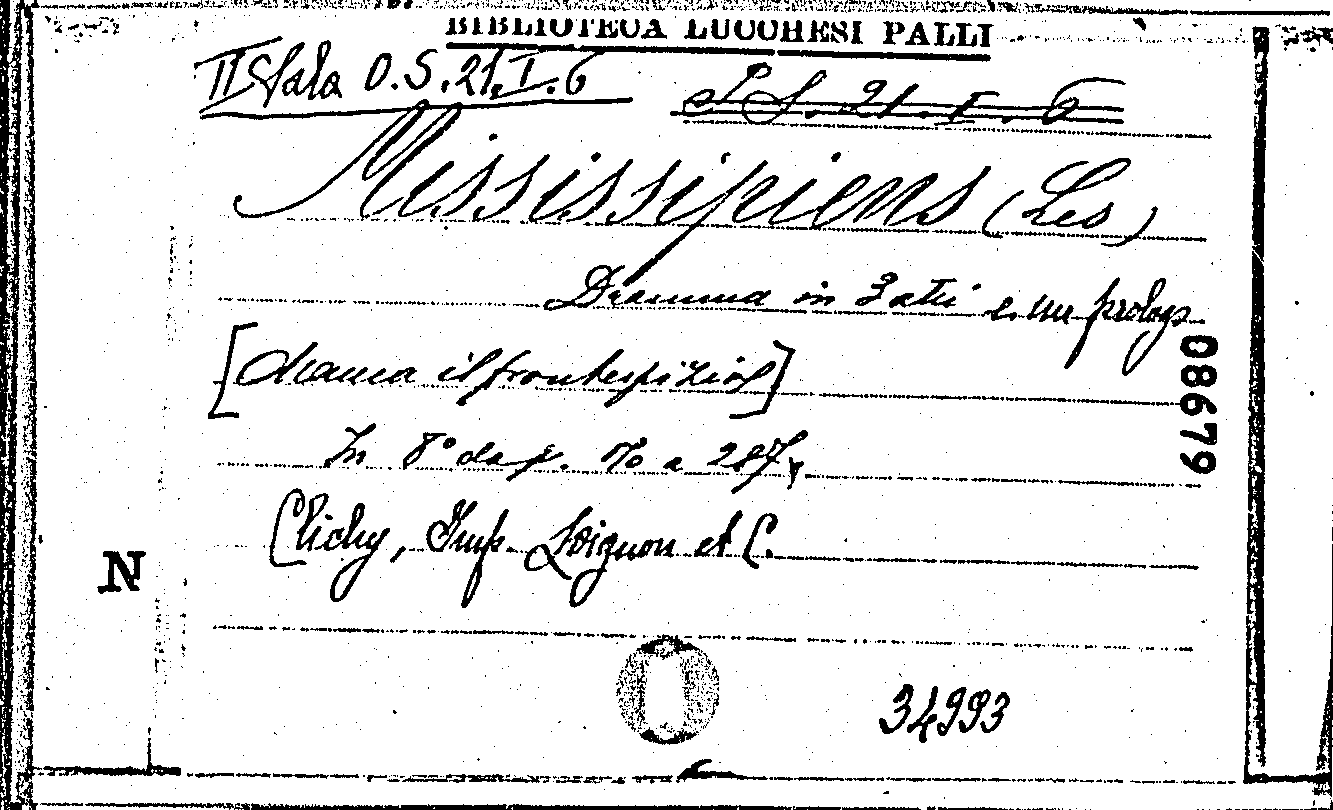 BIBLIOTECA LUCCHESI PALLI
II Sala O.S.21.I.6
P S. 21. I. 6
Mississipiens (Les)
Dramma in 3 atti e un prologo
[Manca il frontespizio]
In 8° da p. a 287
Clichy, Imp. Loignon et C.
08679
N
34993